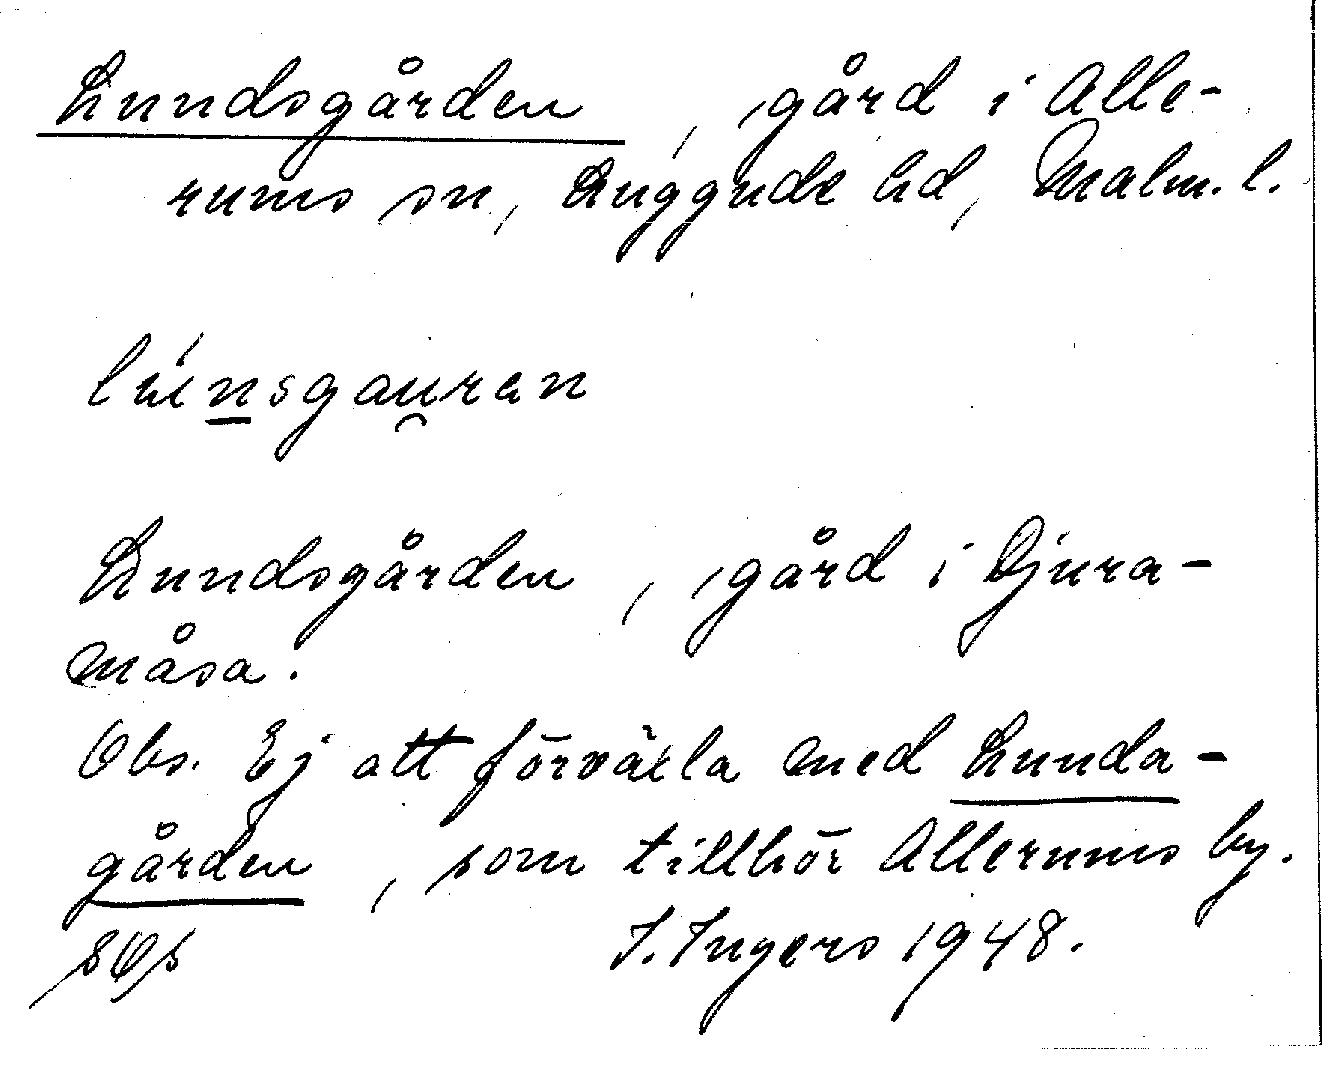 Lundsgården, gård i Alle-
rums sn, Luggude hd, Malm. l.
lúnsgauran
Lundsgården, gård i Djura-
måsa.
Obs. Ej att förväxla med Lunda-
gården, som tillhör Allerums by.
I. Ingers 1948.